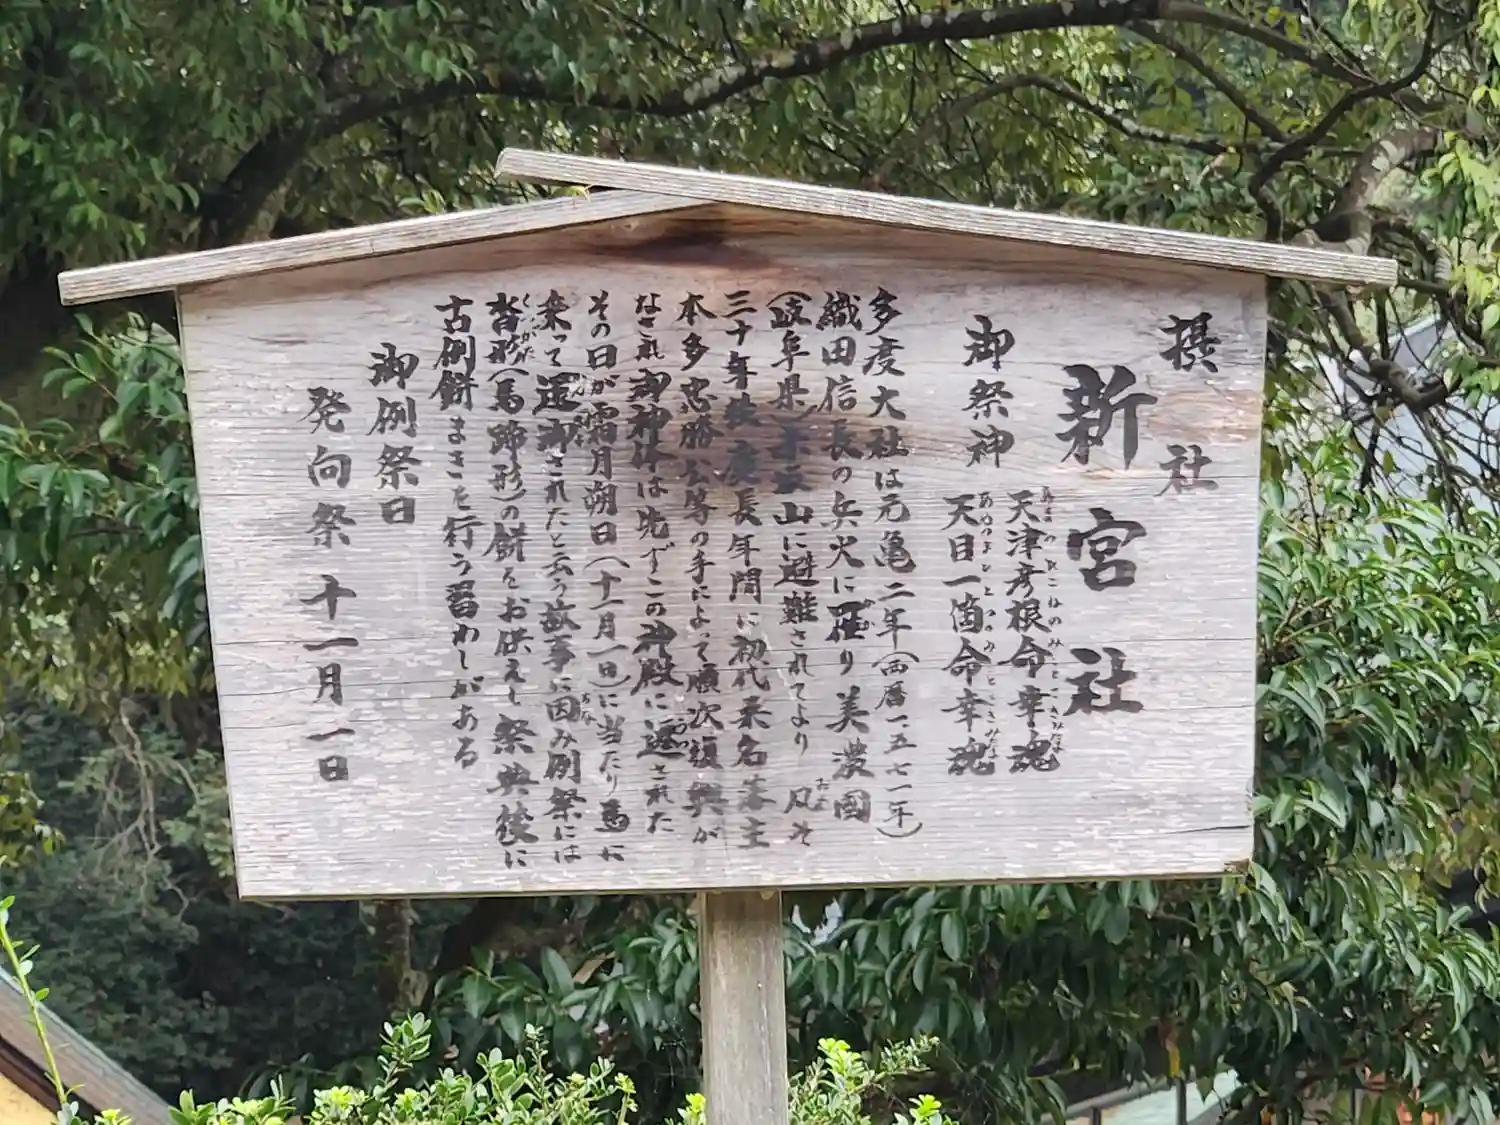 摂社
新宮社
御祭神
天津彦根命幸魂
天目一箇命幸魂
多度大社は元亀二年(西暦一五七一年)
織田信長の兵火に罹り美濃国
(岐阜県)山に避難されてより凡そ
三十年後慶長年間に初代桑名藩主
本多忠勝公等の手によって順次復興が
なされ御神体は先ずこの神殿に還された
その日が霜月朔日(十一月一日)に当たり馬に
乗って還御されたと云う故事に因み例祭には
沓形(馬蹄形)の餅をお供えし祭典後に
古例餅まきを行う習わしがある
御例祭日
発向祭 十一月一日